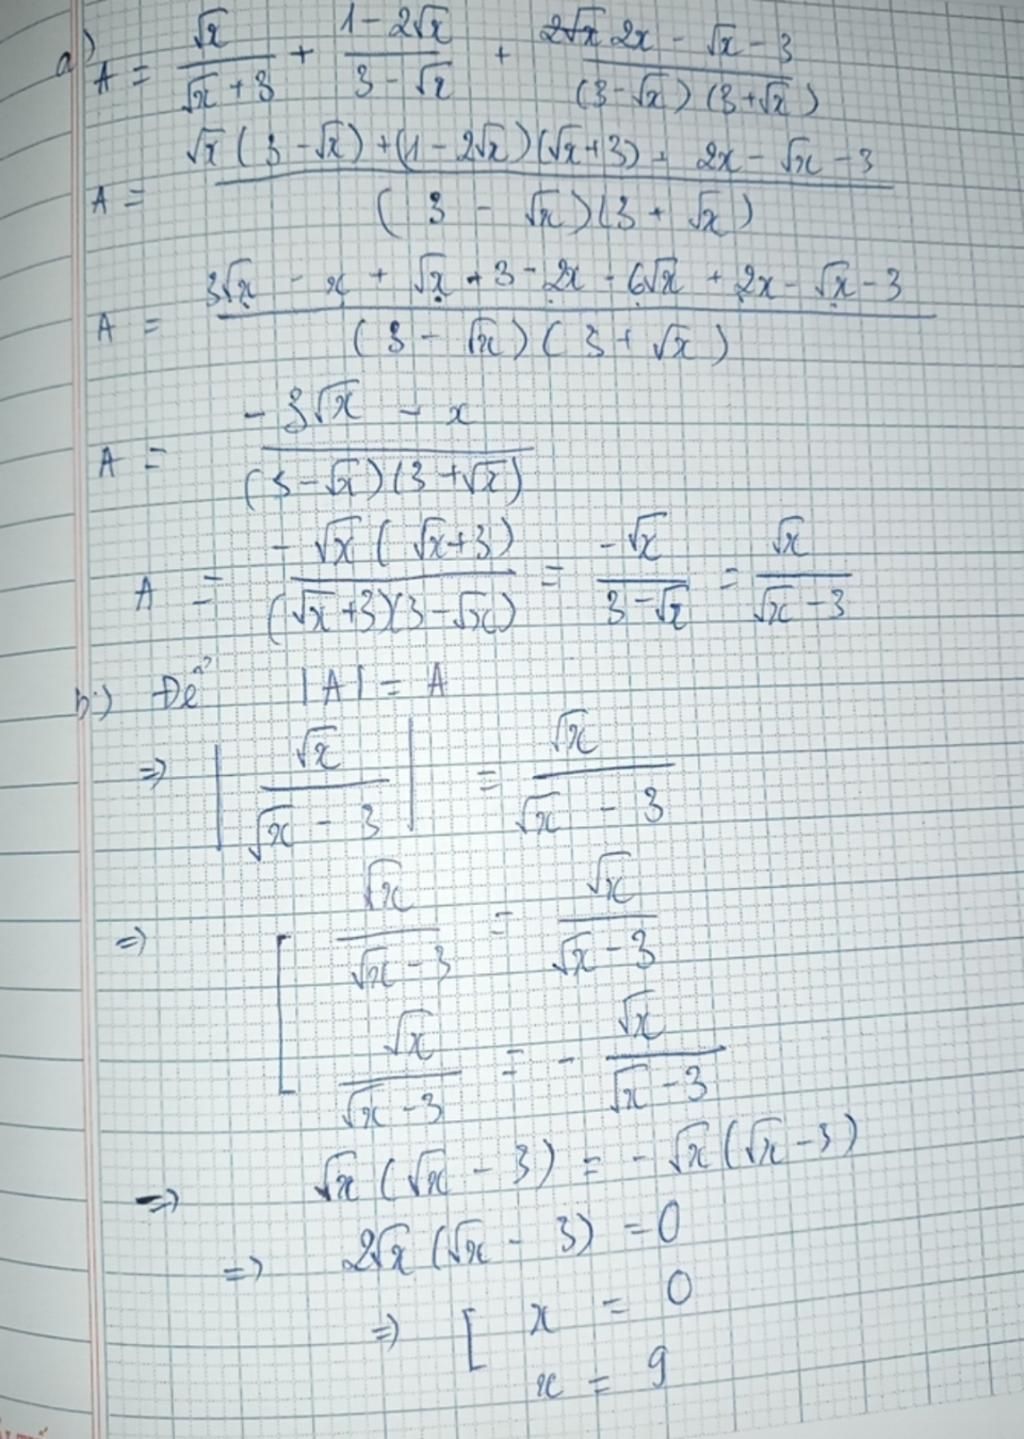 a) A = √x/(√x + 3) + (1 - 2√x)/(3 - √x) + (2x - √x - 3)/((3 - √x)(3 + √x))
A = (√x(3 - √x) + (1 - 2√x)(√x + 3) + 2x - √x - 3)/((3 - √x)(3 + √x))
A = (3√x - x + √x + 3 - 2x - 6√x + 2x - √x - 3)/((3 - √x)(3 + √x))
A = (-3√x - x)/((3 - √x)(3 + √x))
A = -√x(√x + 3)/((√x + 3)(3 - √x)) = -√x/(3 - √x) = √x/(√x - 3)
b) Để |A| = A
=> |√x/(√x - 3)| = √x/(√x - 3)
=> [ √x/(√x - 3) = √x/(√x - 3)
√x/(√x - 3) = - √x/(√x - 3)
=> √x(√x - 3) = -√x(√x - 3)
=> 2√x(√x - 3) = 0
=> [ x = 0
x = 9